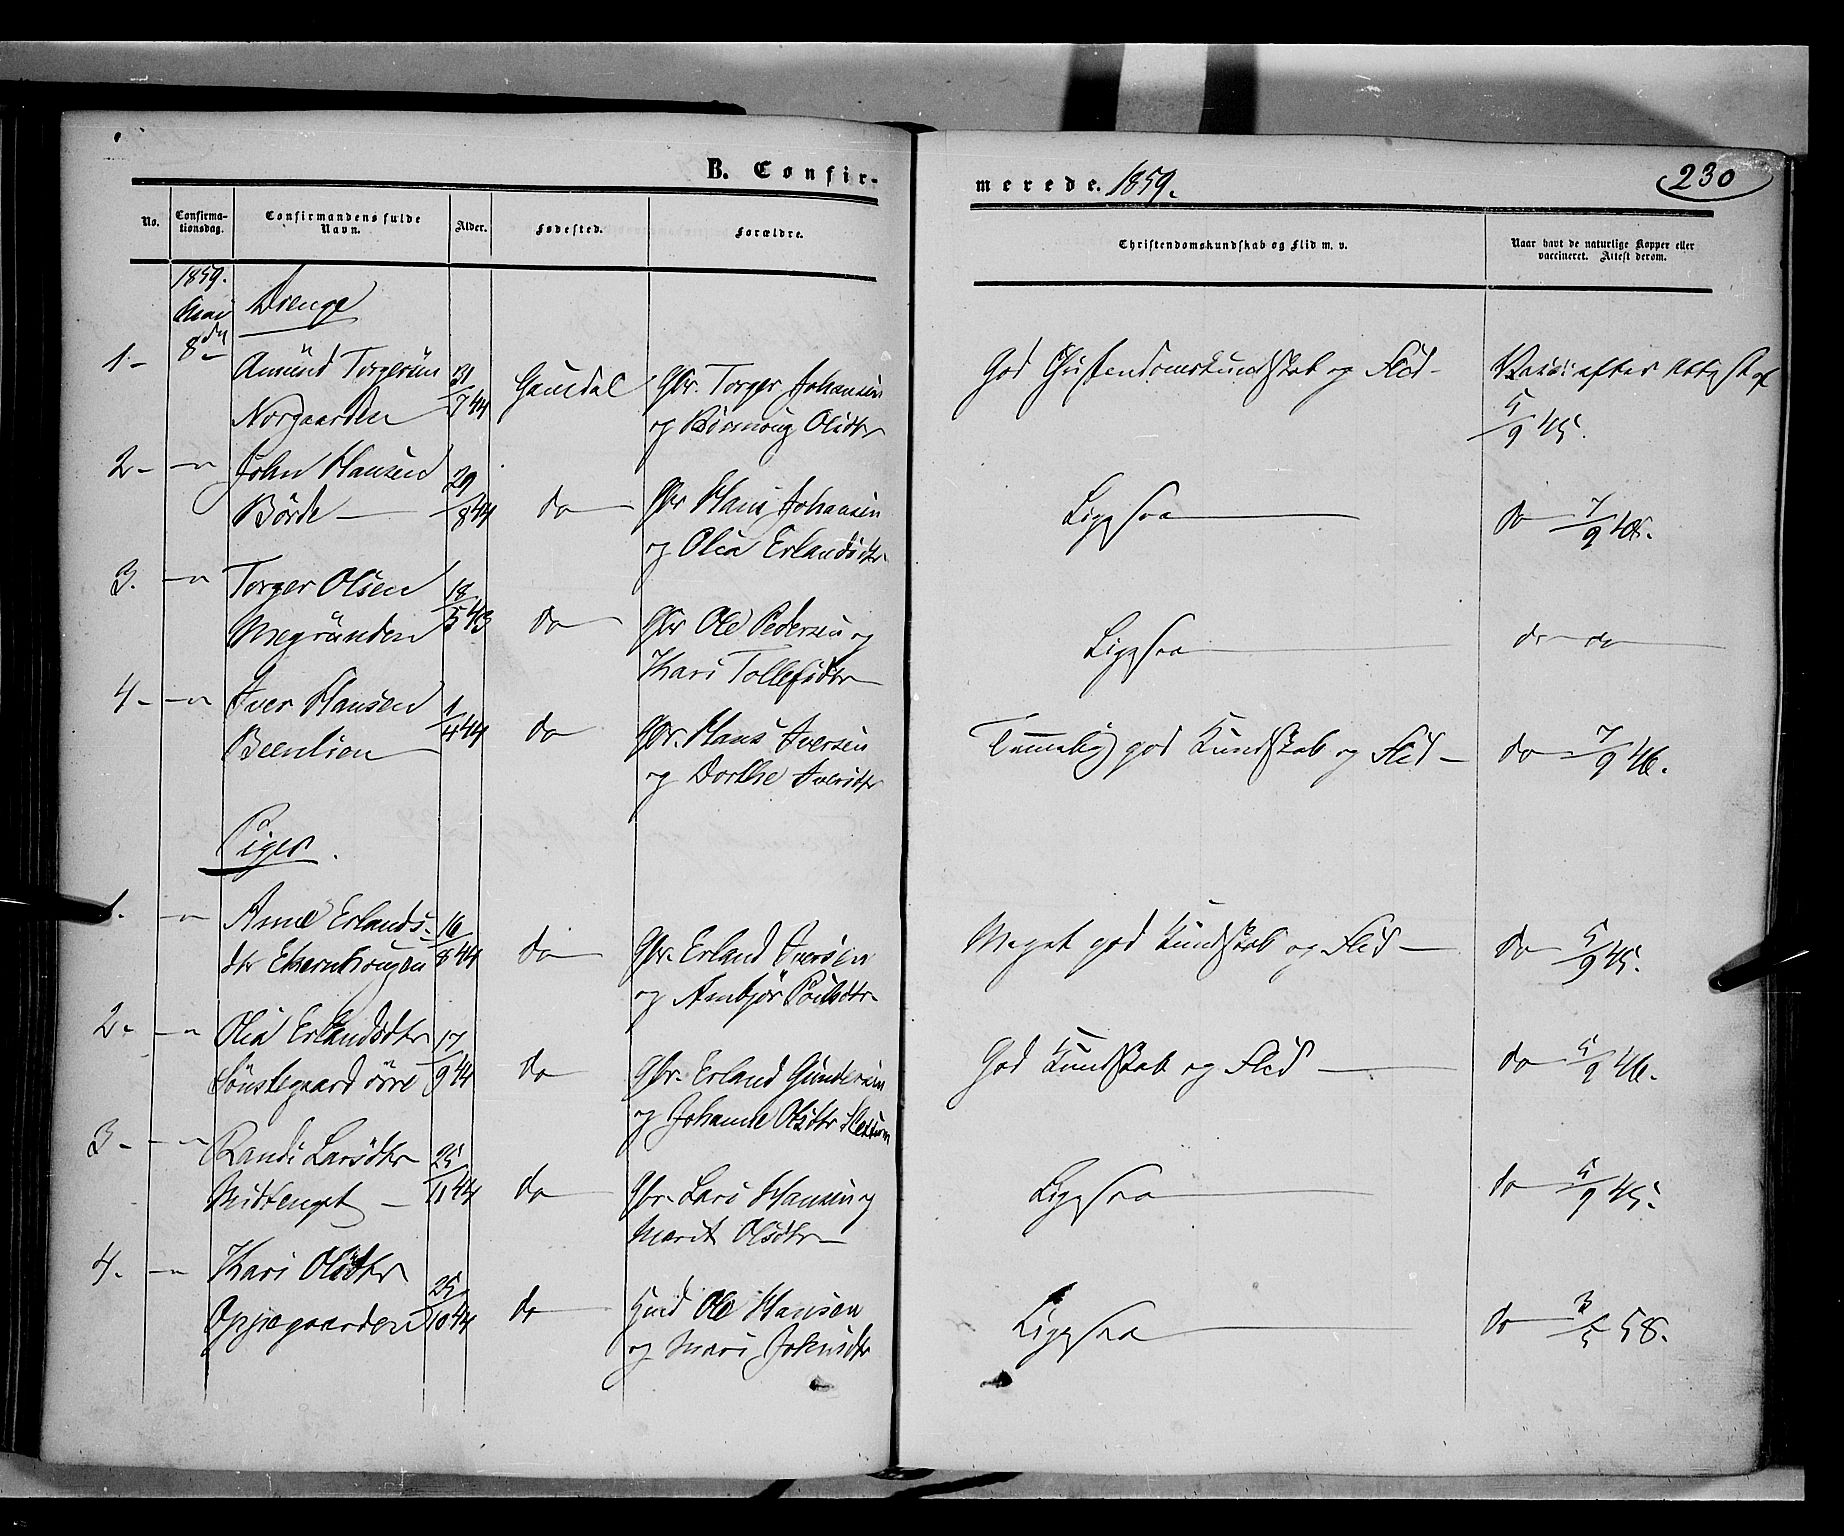 B. Confirmerede. 1859.
230
No.
Confirma-
tionsdag.
Confirmandens fulde
Navn.
Alder.
Fødested.
Forældre.
Christendomskundskab og Flid m. v.
Naar havt de naturlige Kopper eller
vaccineret. Attest derom.
1859.
Mai
8de
Drenge
1- Amund Torgersen 31/7 44 Gausdal Gbr. Torger Johansen God Christendomskundskab og Flid- Vacc: efter Attest af
Norgaarden og Olsdtr 5/9 45.
2- -"- John Hansen 29/8 44 do Gbr Hans Johansen Ligesaa do 7/9 45.
Börde og Olia Erlandsdtr
3. -"- Torger Olsen 18/5 43 do Gbr Ole Pedersen og Ligesaa do do
Megrunden Kari Tollefsdtr
4- -"- Iver Hansen 1/4 44 do Gbr. Hans Iversen Temmelig god Kundskab og Flid- do 7/9 46.
og Dorthe Iversdtr
Piger.
1. -"- Anne Erlands- 16/8 44 do Gbr. Erland Iversen Meget god Kundskab og Flid- do 5/9 45.
dtr og Ambjör Povlsdtr
2- -"- Olia Erlandsdtr 17/9 44 do Gbr. Erland Gundersen God Kundskab og Flid do 5/9 46.
Sönstegaard övre og Johanne Olsdtr
3- -"- Randi Larsdtr 25/11 44 do Gbr. Lars Hansen og Ligesaa do 5/9 45.
Midtenget Marit Olsdtr
4. -"- Kari Olsdtr 25/10 44 do Ole Hansen Ligesaa do 58.
Oppegaarden og Mari Johnsdtr